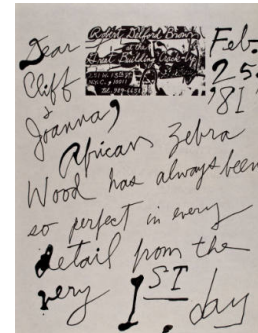 Dear
Cliff
&
Joanna,
Robert Delford Brown
at the
Great Building Crack-Up
251 W. 13th ST.
N.Y.C., 10011
Feb.
25.
'81
African Zebra
Wood has always been
so perfect in every
detail from the
very 1ST day